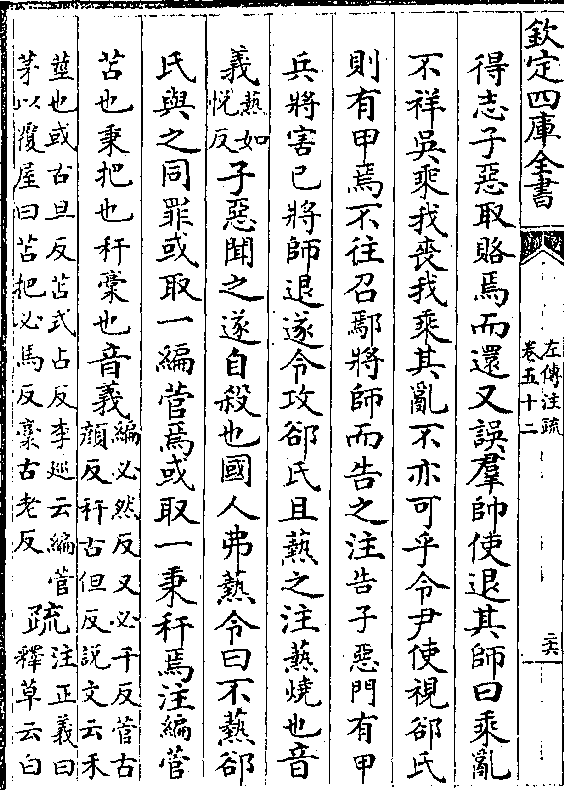 欽定四庫全書
左傳注疏
卷五十二
二六
得志子惡取賂焉而還又誤羣帥使退其師曰乘亂
不祥吳乘我喪我乘其亂不亦可乎令尹使視郤氏
則有甲焉不往召鄢將師而告之注告子惡門有甲
兵將害已將師退遂令攻郤氏且爇之注爇燒也音
義爇如悅反子惡聞之遂自殺也國人弗爇令曰不爇郤
氏與之同罪或取一編菅焉或取一秉秆焉注編菅
苫也秉把也秆稾也音義編必然反又必千反菅古
顔反秆古但反説文云禾
莖也或古旦反苫式占反李廵云編菅
茅以覆屋曰苫把必馬反稾古老反
疏注正義曰
釋草云白